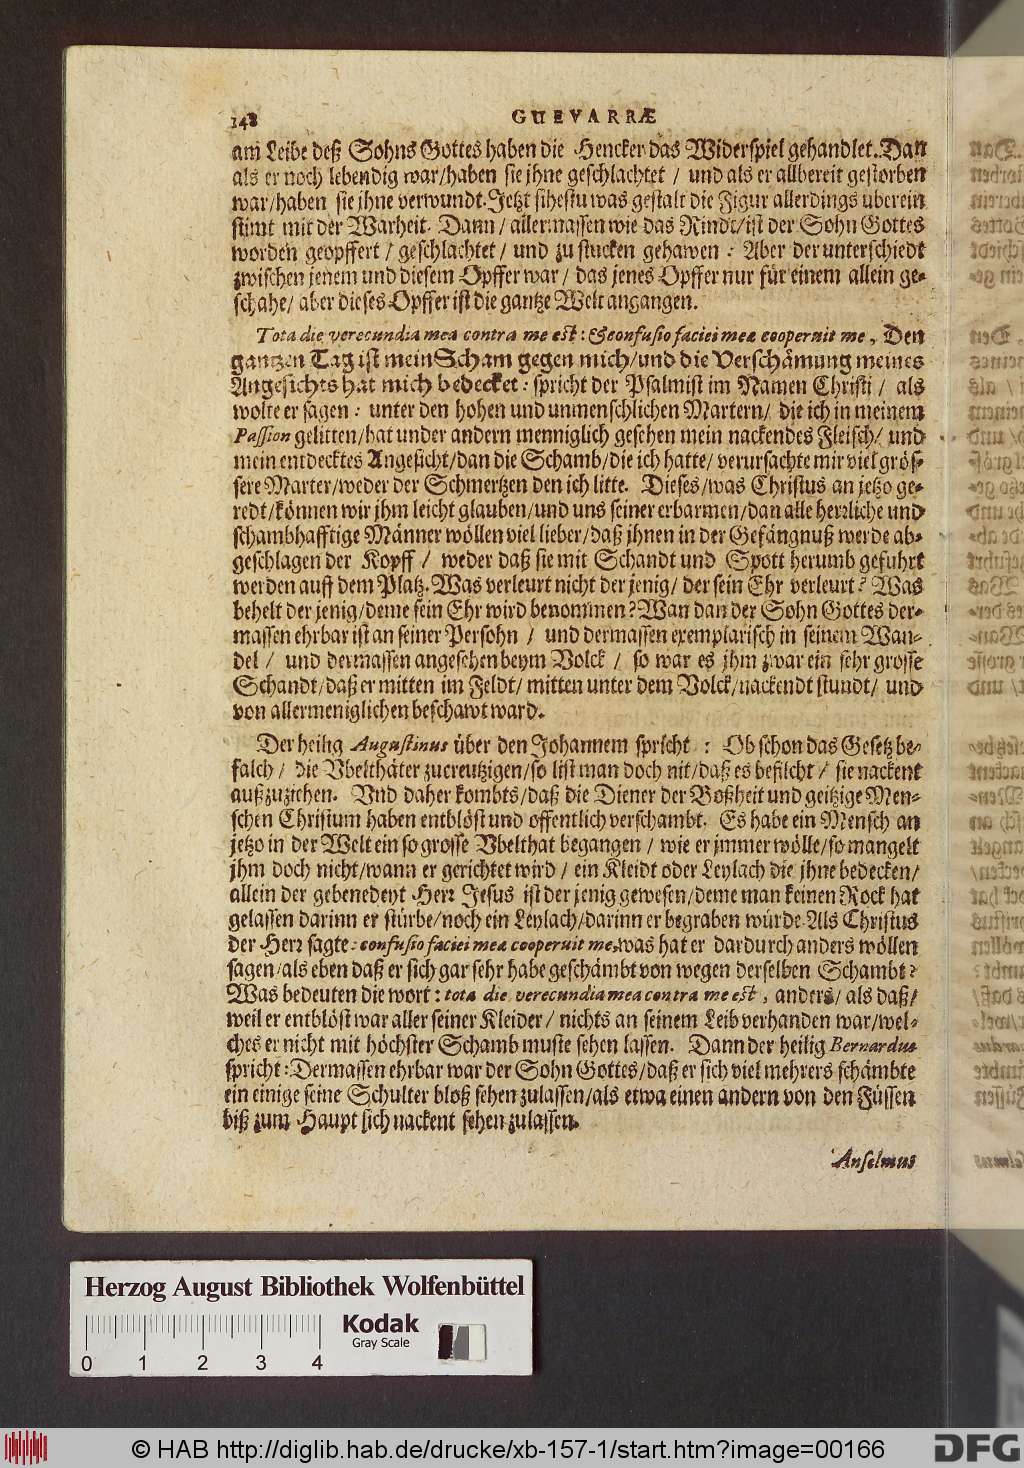 148
GUEVARRÆ
am Leibe deß Sohns Gottes haben die Hencker das Widerspiel gehandlet. Dan
als er noch lebendig war/haben sie jhne geschlachtet / und als er allbereit gestorben
war/haben sie jhne verwundt. Jetzt sihestu was gestalt die Figur allerdings uberein
stimt mit der Warheit. Dann / allermassen wie das Rindt/ist der Sohn Gottes
worden geopffert / geschlachtet / und zu stucken gehawen : Aber der unterschiedt
zwischen jenem und diesem Opffer war / das jenes Opffer nur für einem allein ge-
schahe/ aber dieses Opffer ist die gantze Welt angangen.
Tota die verecundia mea contra me est: & confusio faciei meæ cooperuit me, Den
gantzen Tag ist mein Scham gegen mich/und die Verschämung meines
Angesichts hat mich bedecket : spricht der Psalmist im Namen Christi / als
wolte er sagen : unter den hohen und unmenschlichen Martern/ die ich in meinem
Passion gelitten/hat under andern menniglich gesehen mein nackendes Fleisch/ und
mein entdecktes Angesicht/dan die Schamb/die ich hatte/ verursachte mir viel grös-
sere Marter/weder der Schmertzen den ich litte. Dieses/was Christus an jetzo ge-
redt/können wir jhm leicht glauben/und uns seiner erbarmen/dan alle herzliche und
schambhafftige Männer wöllen viel lieber/daß jhnen in der Gefängnuß werde ab-
geschlagen der Kopff / weder daß sie mit Schandt und Spott herumb gefuhrt
werden auff dem Platz. Was verleurt nicht der jenig/ der sein Ehr verleurt? Was
behelt der jenig/deme sein Ehr wird benommen? Wan dan der Sohn Gottes der-
massen ehrbar ist an seiner Persohn / und dermassen exemplarisch in seinem Wan-
del / und dermassen angesehen beym Volck / so war es jhm zwar ein sehr grosse
Schandt/daß er mitten im Feldt/ mitten unter dem Volck/nackendt stundt/ und
von allermeniglichen beschawt ward.
Der heilig Augustinus über den Johannem spricht : Ob schon das Gesetz be-
falch / die Vbelthäter zucreutzigen/so list man doch nit/daß es befilcht / sie nackent
außzuziehen. Vnd daher kombts/daß die Diener der Boßheit und geitzige Men-
schen Christum haben entblöst und offentlich verschambt. Es habe ein Mensch an
jetzo in der Welt ein so grosse Vbelthat begangen / wie er jmmer wölle/so mangelt
jhm doch nicht/wann er gerichtet wird / ein Kleidt oder Leylach die jhne bedecken/
allein der gebenedeyt Herr Jesus ist der jenig gewesen/deme man keinen Rock hat
gelassen darinn er stürbe/noch ein Leylach/darinn er begraben würde. Als Christus
der Herr sagte: confusio faciei meæ cooperuit me, was hat er dardurch anders wöllen
sagen/als eben daß er sich gar sehr habe geschämbt von wegen derselben Schambt?
Was bedeuten die wort : tota die verecundia mea contra me est, anders/ als daß/
weil er entblöst war aller seiner Kleider / nichts an seinem Leib verhanden war/wel-
ches er nicht mit höchster Schamb muste sehen lassen. Dann der heilig Bernardus
spricht : Dermassen ehrbar war der Sohn Gottes/daß er sich viel mehrers schämbte
ein einige seine Schulter bloß sehen zulassen/als etwa einen andern von den Füssen
biß zum Haupt sich nackent sehen zulassen.
Anselmus
Herzog August Bibliothek Wolfenbüttel
Kodak
Gray Scale
0 1 2 3 4
© HAB http://diglib.hab.de/drucke/xb-157-1/start.htm?image=00166
DFG